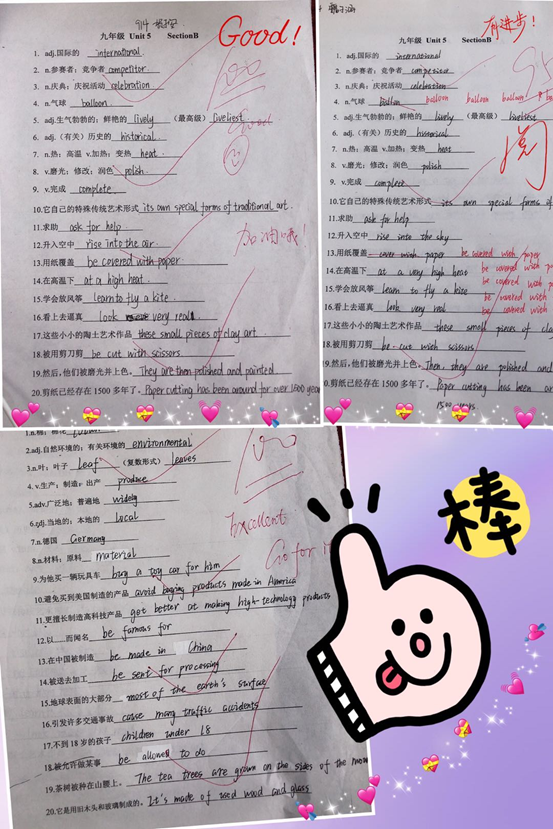 Good!
九年级 Unit 5 SectionB
100
1. adj.国际的 international
2. n.参赛者；竞争者 competitor
3. n.庆典；庆祝活动 celebration
4. n.气球 balloon
5. adj.生气勃勃的；鲜艳的 lively （最高级） liveliest
6. adj.（有关）历史的 historical
7. n.热；高温 v.加热；变热 heat
8. v.磨光；修改；润色 polish
9. v.完成 complete
10.它自己的特殊传统艺术形式 its own special forms of traditional art.
11.求助 ask for help
12.升入空中 rise into the air
13.用纸覆盖 be covered with paper
14.在高温下 at a high heat
15.学会放风筝 learn to fly a kite
16.看上去逼真 look very real
17.这些小小的陶土艺术作品 these small pieces of clay art
18.被用剪刀剪 be cut with scissors
19.然后，他们被磨光并上色。They are then polished and painted
20.剪纸已经存在 1500 多年了。Paper cutting has been around for over 1500 years
加油哦！
有进步！
九年级 Unit 5 SectionB
1. adj.国际的 international
2. n.参赛者；竞争者
3. n.庆典；庆祝活动 celebration
4. n.气球 balloon balloon balloon
5. adj.生气勃勃的；鲜艳的 lively （最高级） liveliest
6. adj.（有关）历史的 historical
7. n.热；高温 v.加热；变热 heat
8. v.磨光；修改；润色 polish
9. v.完成 complete
10.它自己的特殊传统艺术形式 its own special forms of
11.求助 ask for help
12.升入空中 rise into the sky
13.用纸覆盖 cover with paper be covered with paper
14.在高温下 at a very high heat be covered with p
15.学会放风筝 learn to fly a kite be covered with
16.看上去逼真 look very real be covered with
17.这些小小的陶土艺术作品 these small pieces of clay
18.被用剪刀剪 be cut with scissors
19.然后，他们被磨光并上色。Then, they are polished and
0.剪纸已经存在 1500 多年了。Paper cutting has been ar
阅
2.adj.自然环境的；有关环境的 environmental
3.n.叶；叶子 leaf （复数形式） leaves
4. v.生产；制造；出产 produce
5.adv.广泛地；普遍地 widely
6.adj.当地的；本地的 local
7.n.德国 Germany
8.n.材料；原料 material
9.为他买一辆玩具车 buy a toy car for him
10.避免买到美国制造的产品 avoid buying products made in America
11.更擅长制造高科技产品 get better at making high-technology products
12.以……而闻名 be famous for
13.在中国被制造 be made in China
14.被送去加工 be sent for processing
15.地球表面的大部分 most of the earth's surface
16.引发许多交通事故 cause many traffic accidents
17.不到 18 岁的孩子 children under 18
18.被允许做某事 be allowed to do
19.茶树被种在山腰上。The tea trees are grown on the sides of the moun
20.它是用旧木头和玻璃制成的。It's made of used wood and glass
100
Excellent
Go for
棒